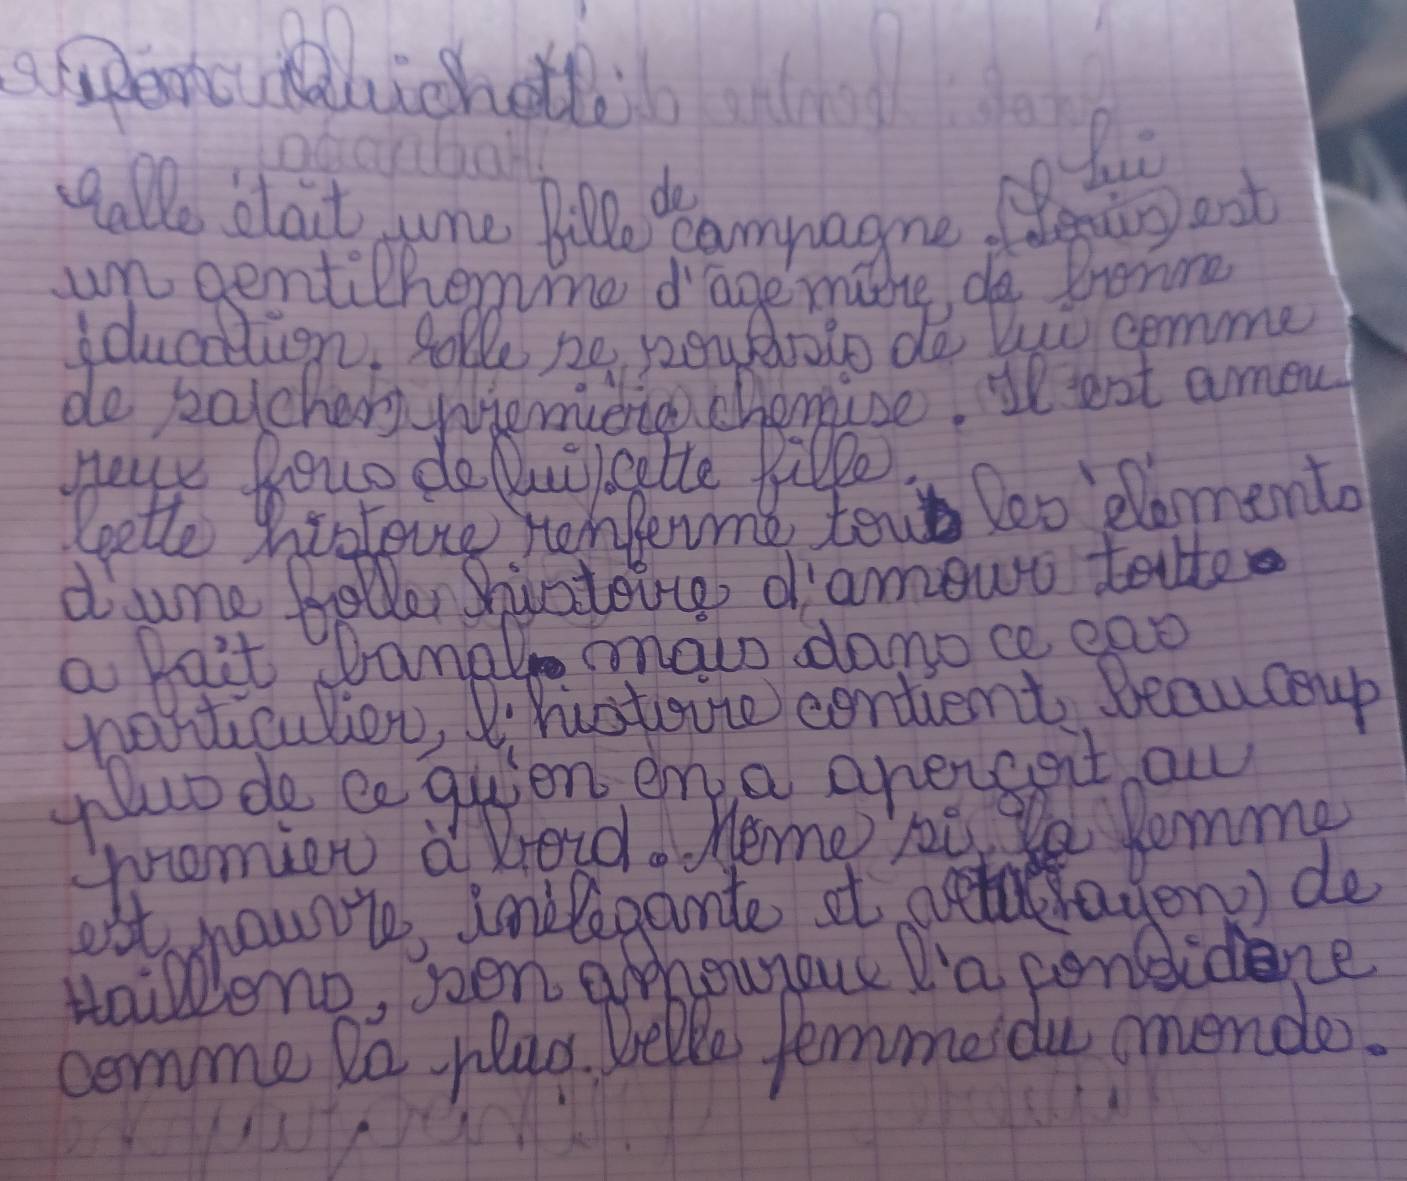 Quichotte
Elle était une fille de campagne. Lui est
un gentilhomme d'age mûre, de bonne
éducation. Elle se souc de lui comme
de sa première chemise. Il est amou
reux fous de (lui) cette fille.
Cette histoire renferme tout les élements
d'une folle histoire d'amour toute
a fait banal mais dans ce cas
particulier, l'histoire contient beaucoup
plus de ce qu'on en a aperçoit au
premier à bord. Même si la femme
est pauvre, inélégante et de
haillons, son amoureux l'a considère
comme la plus belle femme du monde.